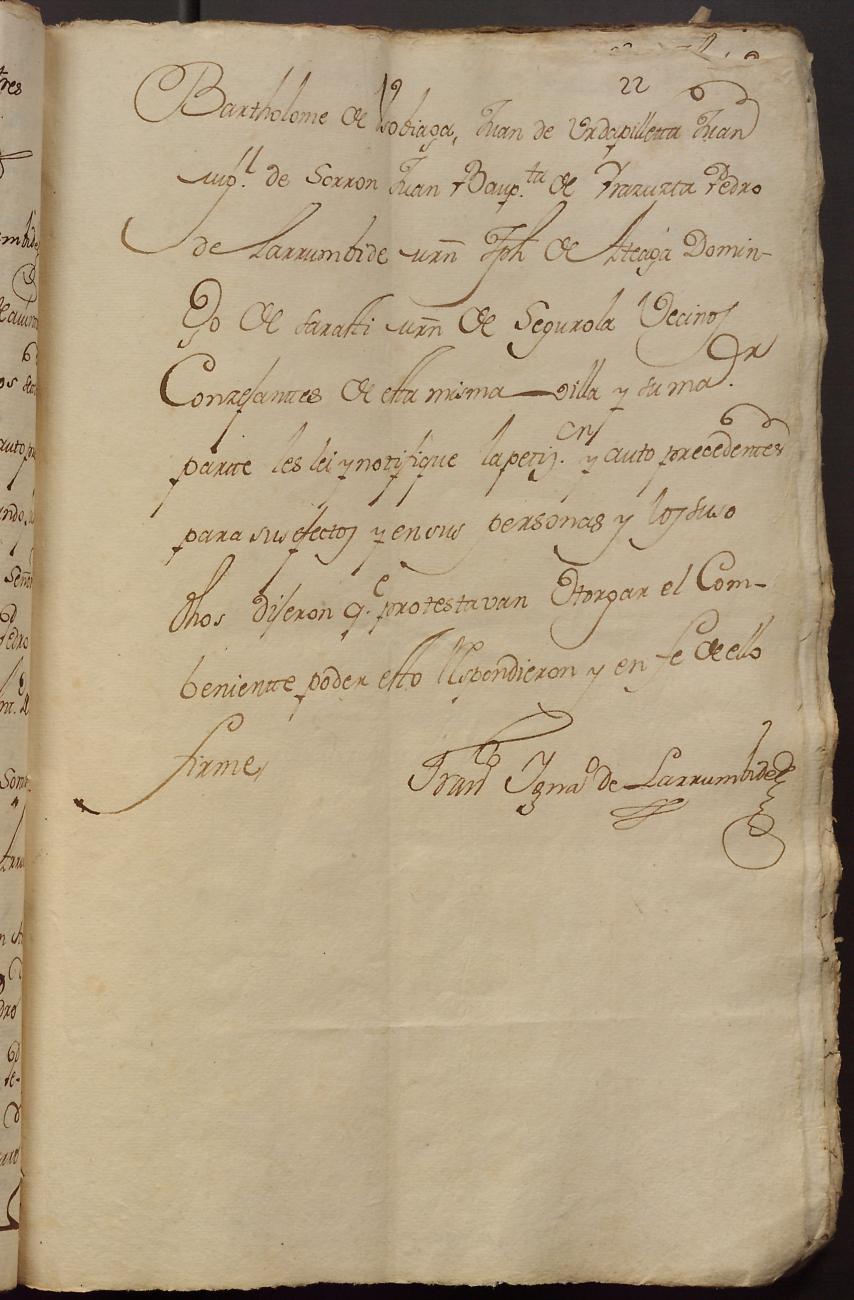 22
Bartholome de Usobiaga, Juan de Urdapilleta Juan
Mig.l de Sorron Juan Baup.ta de Yrazuzta Pedro
de Larrumbide mrñ Jph de Ateaga Domin-
go de Saratti mrñ de Segurola Vecinos
Conzesantes de esta misma villa y su ma.or
partte les lei y notifique la petiz.on y auto precedentes
para sus efectos y en sus personas y los suso
dhos diseron q.e protestavan Otorgar el Com-
beniente poder esto Respondieron y en fe de ello
firme,
Fran.co Ygna.o de Larrumbide